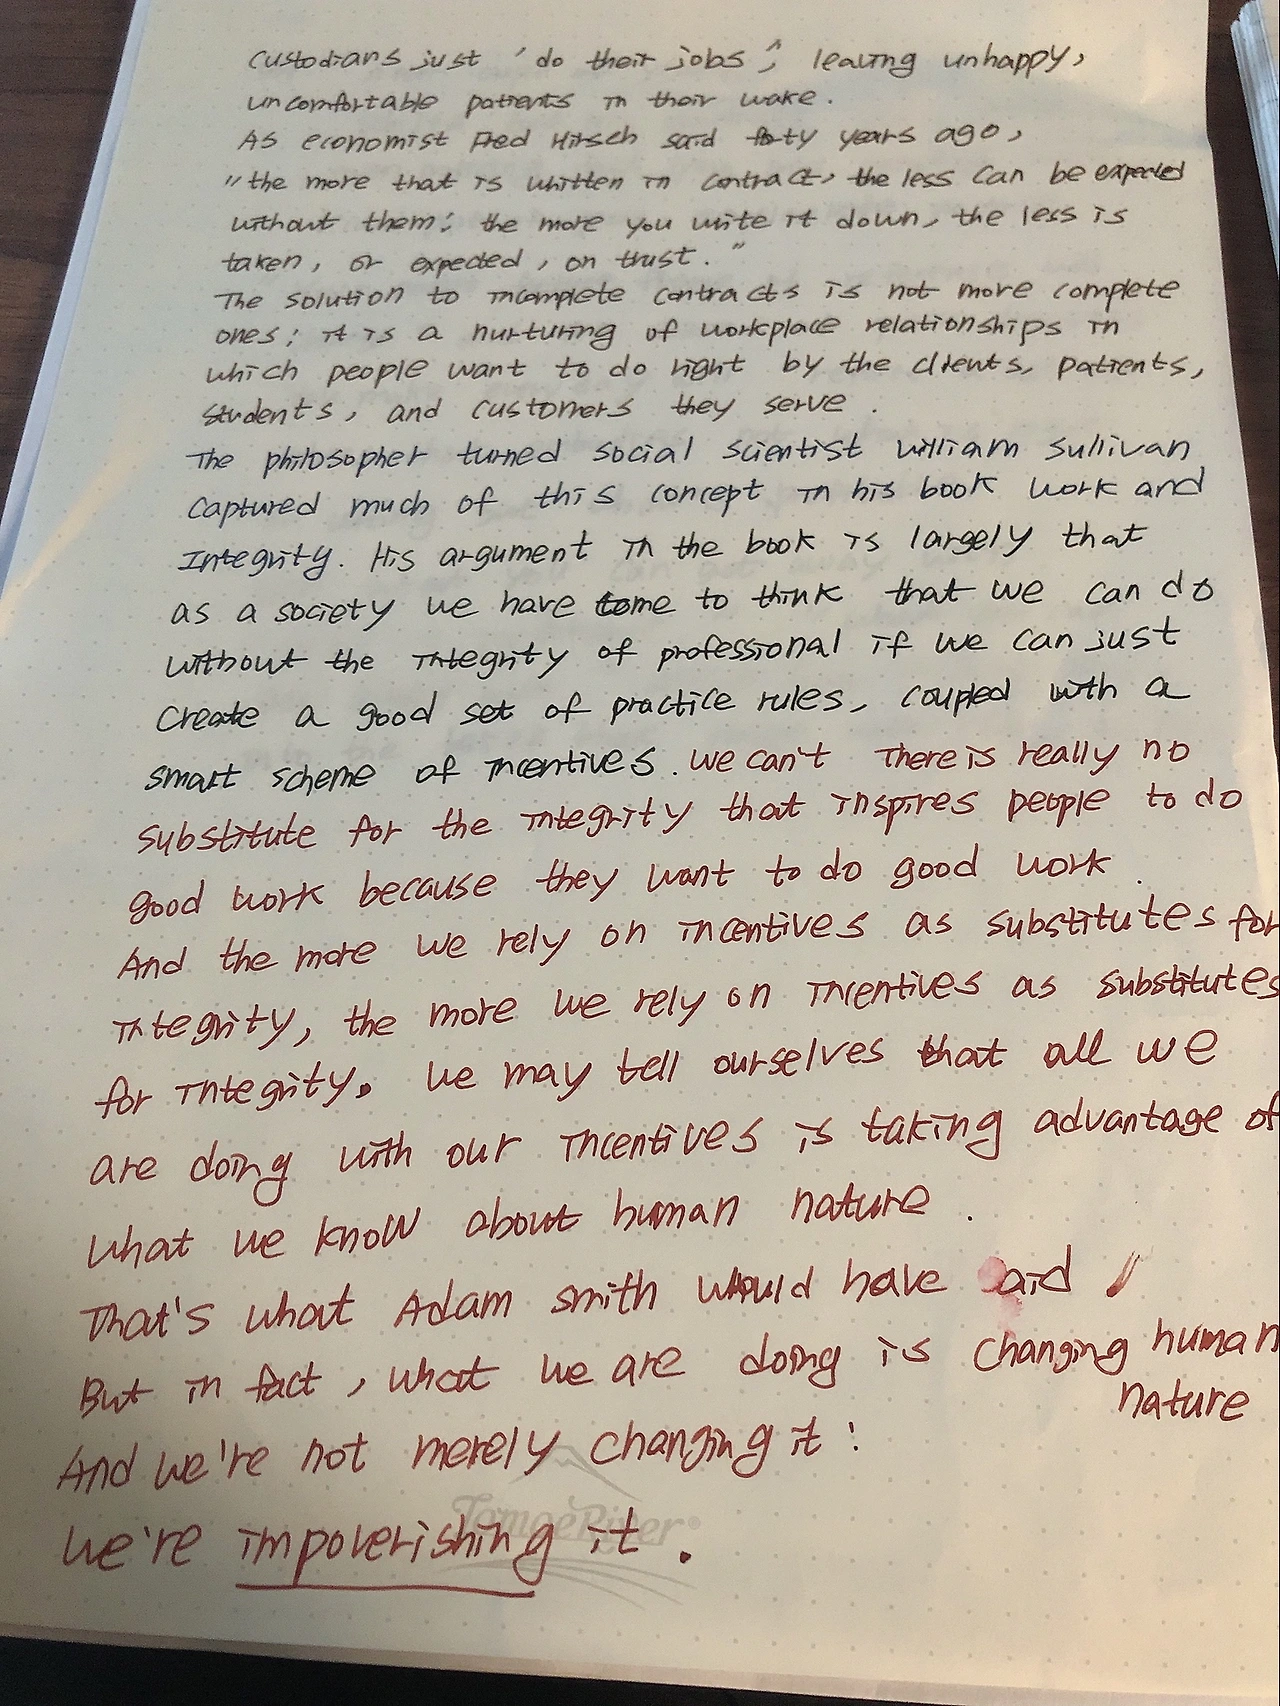 Custodians just 'do their jobs', leaving unhappy,
uncomfortable patients in their wake.
As economist Fred Hirsch said forty years ago,
"the more that is written in contract, the less can be expected
without them; the more you write it down, the less is
taken, or expected, on trust."
The solution to incomplete contracts is not more complete
ones; it is a nurturing of workplace relationships in
which people want to do right by the clients, patients,
students, and customers they serve.
The philosopher turned social scientist William Sullivan
captured much of this concept in his book Work and
Integrity. His argument in the book is largely that
as a society we have come to think that we can do
without the integrity of professional if we can just
create a good set of practice rules, coupled with a
smart scheme of incentives. We can't There is really no
substitute for the integrity that inspires people to do
good work because they want to do good work.
And the more we rely on incentives as substitutes for
integrity, the more we rely on incentives as substitutes
for integrity. We may tell ourselves that all we
are doing with our incentives is taking advantage of
what we know about human nature.
That's what Adam Smith would have said
But in fact, what we are doing is changing human
nature
And we're not merely changing it:
We're impoverishing it.
TomoeRiver®